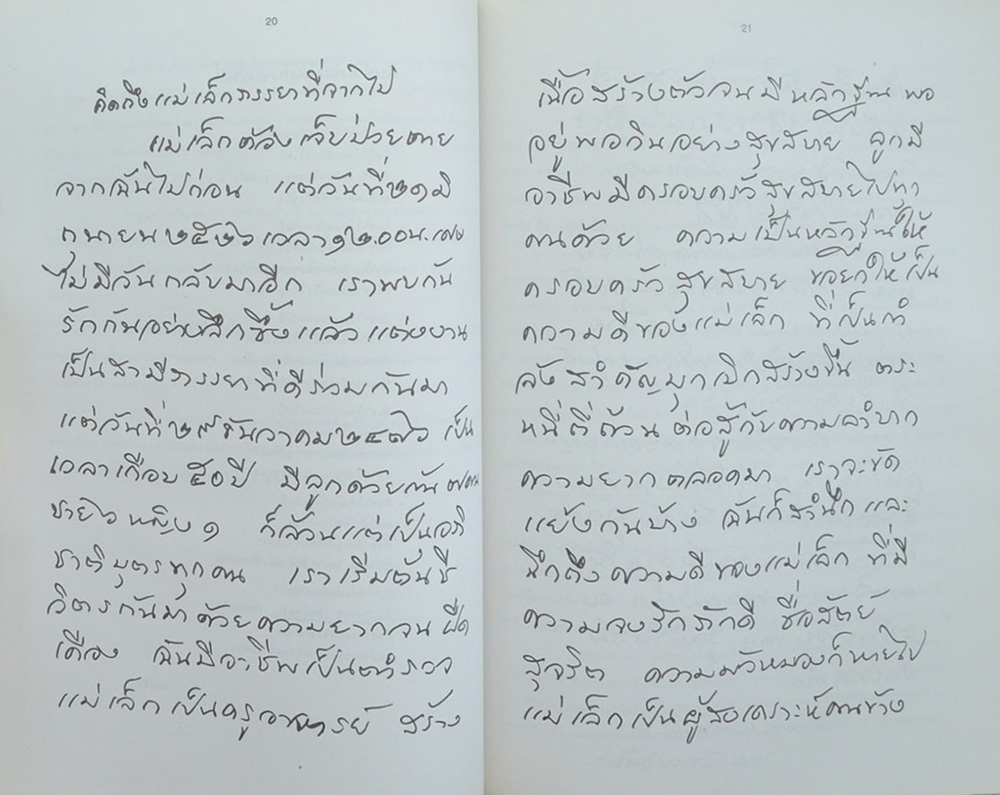 20
คิดถึงแม่เล็กภรรยาที่จากไป
แม่เล็กต้องเจ็บป่วยตาย
จากฉันไปก่อน แต่วันที่๒๑มิ
ถุนายน๒๕๒๖เวลา๑๒.๐๐น.
ไม่มีวันกลับมาอีก เราพบกัน
รักกันอย่างลึกซึ้งแล้วแต่งงาน
เป็นสามีภรรยาที่ดีร่วมกันมา
แต่วันที่๒๗ธันวาคม๒๔๗๖เป็น
เวลาเกือบ๕๐ปี มีลูกด้วยกัน๗คน
ชาย๖หญิง๑ ก็ล้วนแต่เป็นอภิ
ชาติบุตรทุกคน เราเริ่มต้นชี
วิตรกันมาด้วยความยากจนฝืด
เคือง ฉันมีอาชีพเป็นตำรวจ
แม่เล็กเป็นครูอาจารย์ สร้าง
21
เนื้อสร้างตัวจนมีหลักฐานพอ
อยู่พอกินอย่างสุขสบาย ลูกมี
อาชีพมีครอบครัวสุขสบายไปทุก
คนด้วย ความเป็นหลักฐานให้
ครอบครัวสุขสบาย ขอยกให้เป็น
ความดีของแม่เล็ก ที่เป็นกำ
ลังสำคัญบุกเบิกสร้างขึ้น ตระ
หนี่ถี่ถ้วนต่อสู้กับความลำบาก
ความยากตลอดมา เราจะขัด
แย้งกันบ้าง ฉันก็สำนึกและ
นึกถึงความดีของแม่เล็ก ที่มี
ความจงรักภักดี ซื่อสัตย์
สุจริต ความมัวหมองก็หายไป
แม่เล็กเป็นผู้สงเคราะห์คนข้าง